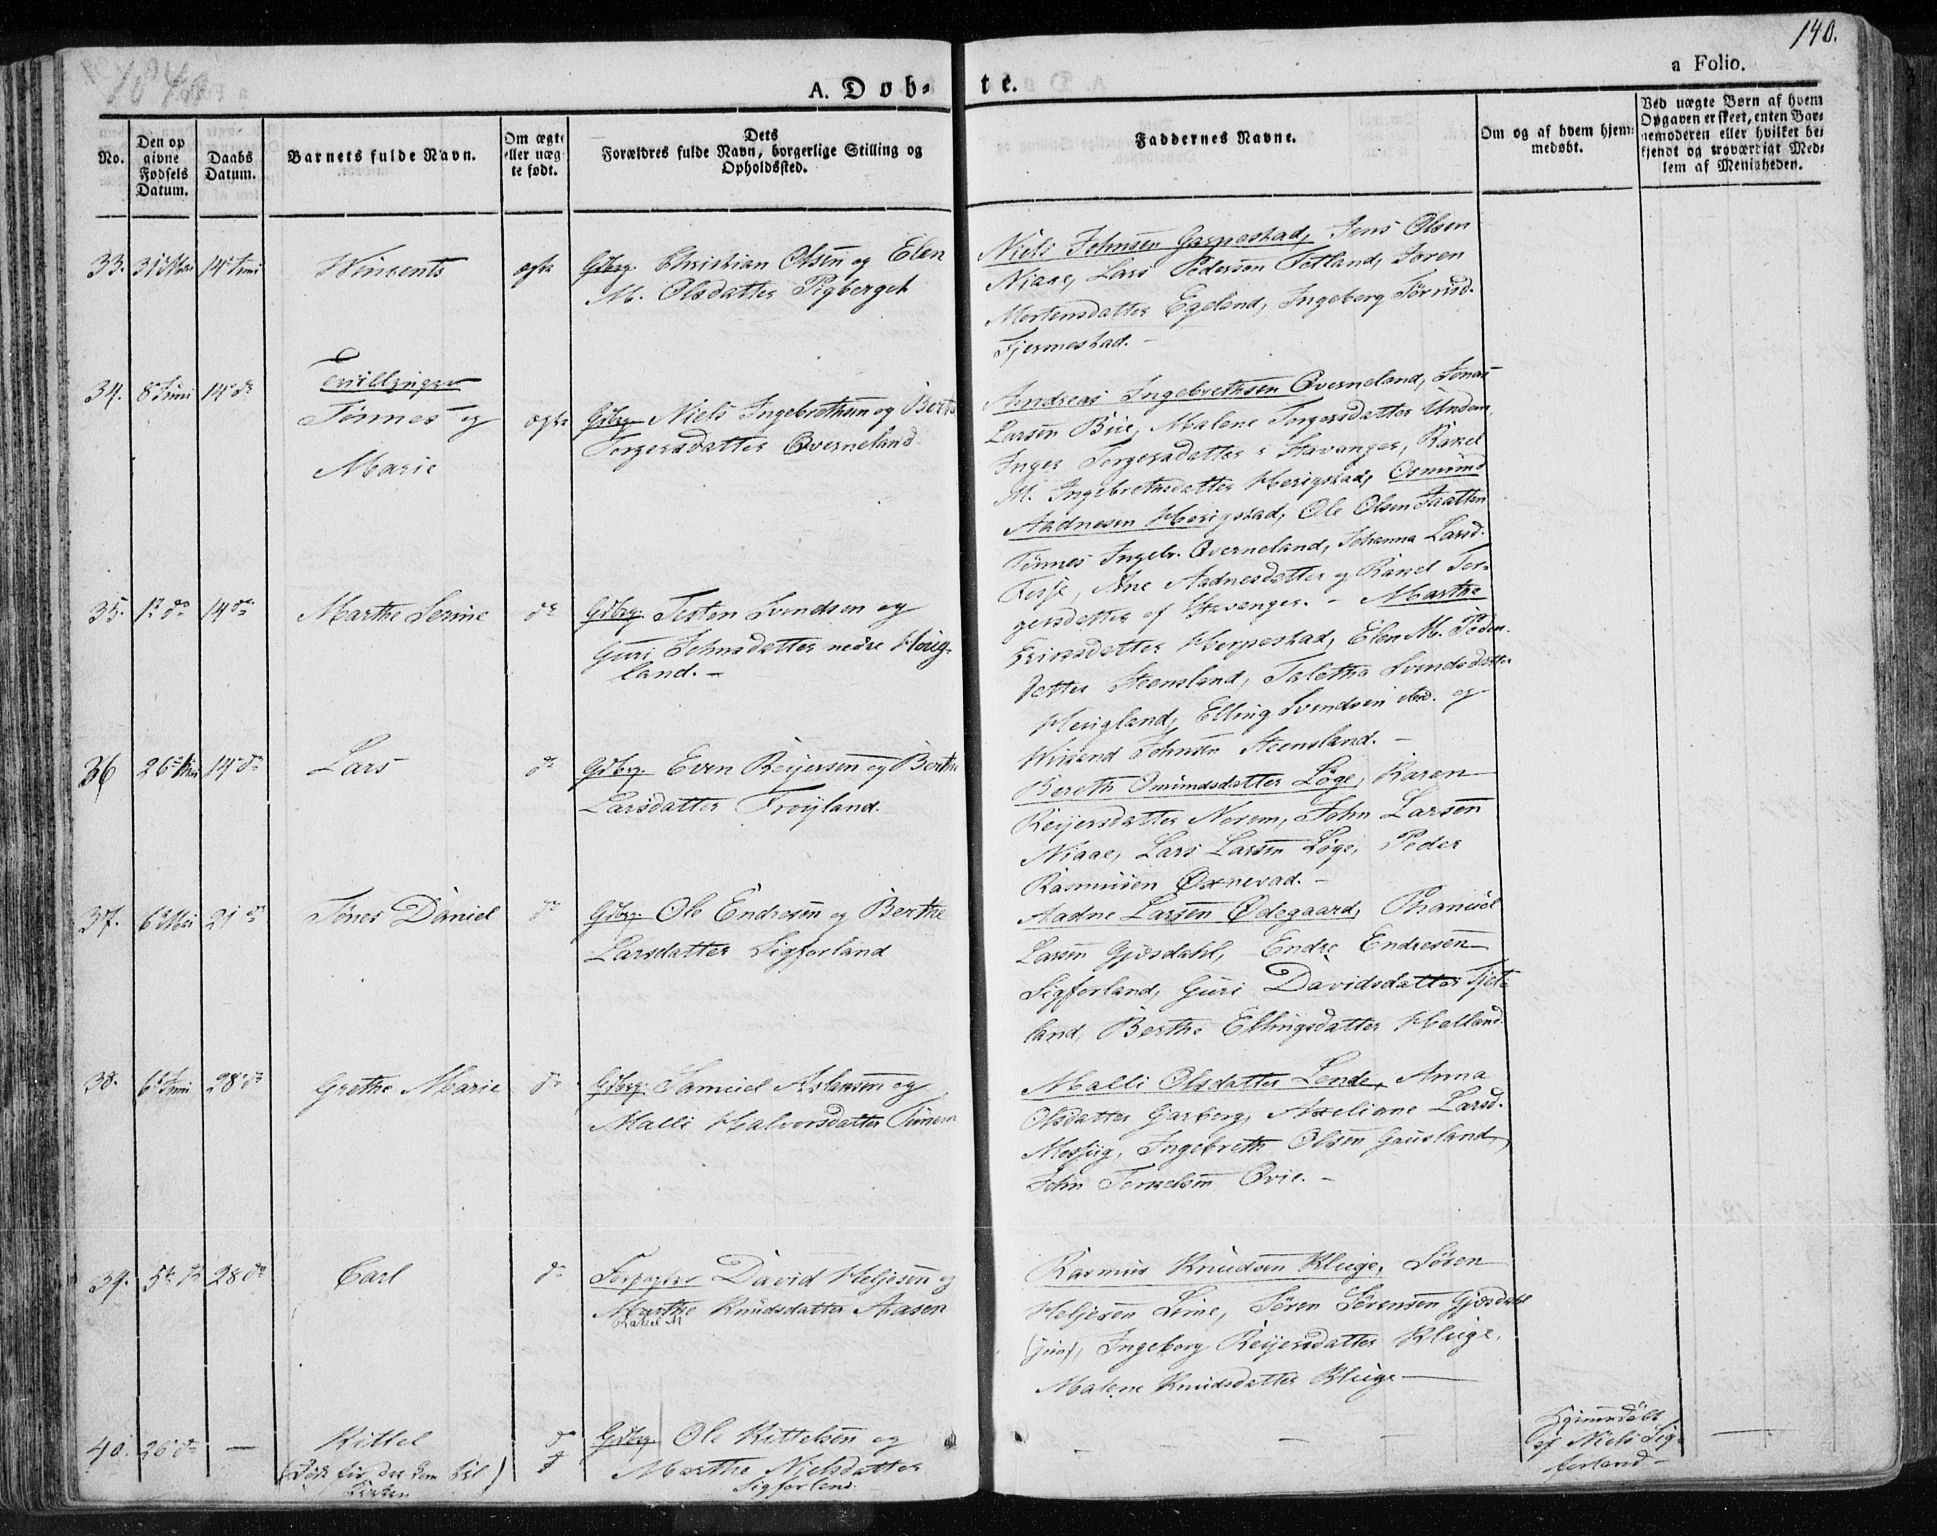 1840
140.
a Folio.
A. Døb-
te.
No.
Den op
givne
Fødsels
Datum.
Daabs
Datum.
Barnets fulde Navn.
Om ægte
eller uæg
te født.
Dets
Forældres fulde Navn, borgerlige Stilling og
Opholdssted.
Faddernes Navne.
Om og af hvem hjem-
medøbt.
Ved uægte Børn af hvem
Opgaven er skeet, enten Bar-
nemoderen eller hvilket be-
kjendt og troværdigt Med-
lem af Menigheden.
33. 14 Juni Wincents ægte Gdbrg. Christian Olsen og Elen
M. Olsdatter Pigberget
Niels Johnsen Garpestad, Jens Olsen
Niaae, Lars Pedersen Tetland, Soren
Mortensdatter Egeland, Ingeborg
Fjermestad. -
34. 8 Juni 14 do
Tvillinger
Tønnes og
Marie
ægte Gdbrg Niels Ingebrethsen og Berte
Torgersdatter Qverneland
Andreas Ingebrethsen Qverneland, Jonas
Larsen Bue, Malene Torgersdatter
Inger Torgersdatter i Stavanger, Rakel
M. Ingebrethsdatter Herigstad, Osmund
Aadnesen Herigstad, Ole Olsen Jaatten
Tønnes Ingebr. Qverneland, Johanna Larsd.
Ane Aadnesdatter og Rakel Tor-
gersdatter af Stavanger. - Marthe
35. do 14 do Marthe Serine do Gdbrg. Testen Svendsen og
Guri Johnsdatter nedre Hauig-
land. -
Eriksdatter Herpestad, Elen M. Peders-
datter Steensland, Taletha Svendsdatter
Hauigland, Elling Svendsen ibid. og
Johnsen Steensland. -
36 26 Mai 14 do Lars do Gdbrg. Even Reijersen og Berthe
Larsdatter Frøyland.
Bereth Omundsdatter Løge, Karen
Reijersdatter Norem, John Larsen
Niaae, Lars Larsen Løge, Peder
Rasmusen Øxnevad. -
37. 6 Mai 21 do Tønes Daniel do Gdbrg. Ole Endresen og Berthe
Larsdatter Sigforland
Aadne Larsen Ødegaard, Thamiel
Larsen Gjesdahl, Endre Endresen
Sigforland, Guri Davidsdatter Tjet-
land, Berthe Ellingsdatter Helland.
38. 6 Juni 28 do Grethe Marie do Gdbrg. Samuel Aslaksen og
Malli Halvorsdatter Tunem
Malli Olsdatter Lende, Anna
Olsdatter Garborg, Axeliane Larsd.
Ingebreth Olsen Gausland,
John Torkelsen Qvie. -
39. 5 do 28 do Carl do Forpagter David Heljesen og
Marthe Knudsdatter Aasen
Rakel M
Rasmus Knudsen Kluge, Søren
Heljesen Lime, Søren Sørensen Gjesdahl
(jun), Ingeborg Reijersdatter Kluge,
Malene Knudsdatter Kluge
40. 26 do - Kittel do Gdbrg. Ole Kittelsen og
(Død før det kom til
Kirken)
Marthe Nielsdatter
Sigforland.
- - - -
Hjemmedøbt
af Niels Sig-
forland -